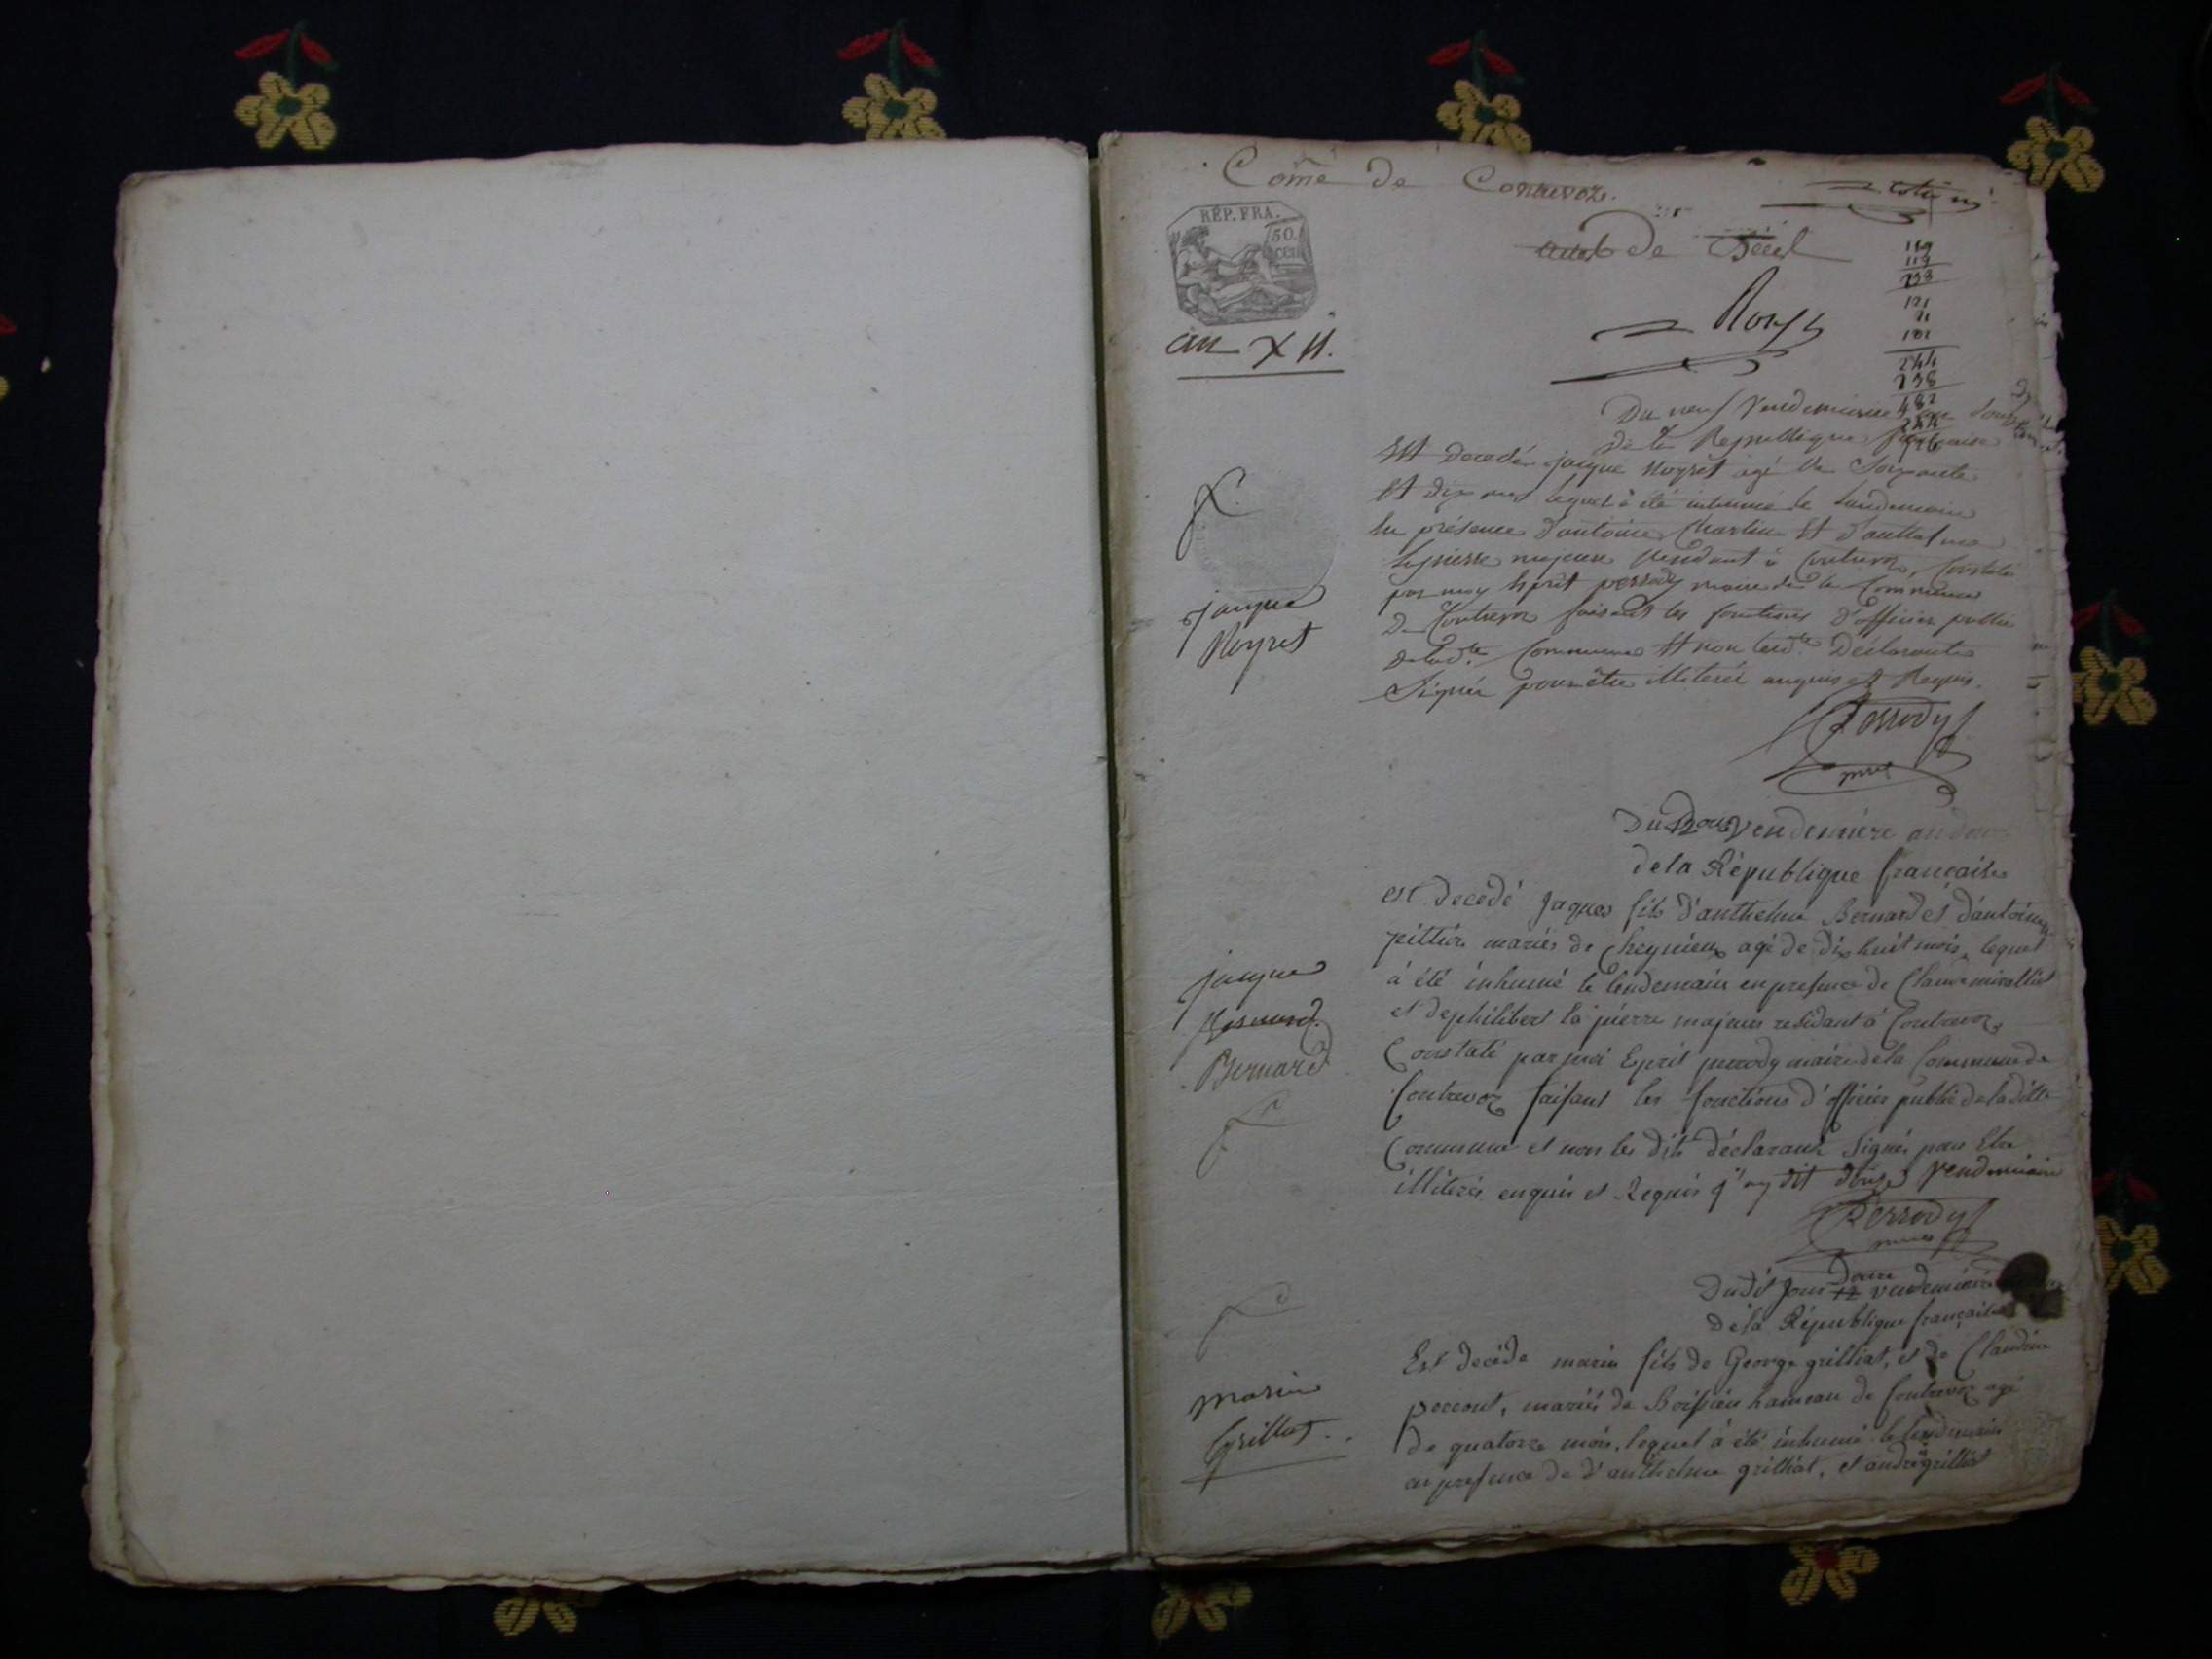 Comē de Contrevoz.
RÉP. FRA.
50.
CEN
acte De Décè
an XII.
119
119
238
121
21
102
244
238
482
244
Du neuf Vendemiaire an douze
De la Republique française
Est Decedé jacque Noyret agé De Soixante
Et dix ans lequel à été inhumé le landemain
En présence D'antoine Charlin Et D'anthelme
majeure Residant à Contrevoz, Constaté
par moy Esprit perrody maire de la Commune
De Contrevoz faisant les fonctions D'officier public
De lad.te Commune Et non lesd.ts Déclarants
Signés pour être illiterés enquis et Requis.
jacque
Noyret
Perrody
mre
Du Douze vendemiere an douze
de la République française
est Decedé Jaques fils d'anthelme Bernard et d'antoine
pittion mariés de Cheynieux agé de dix huit mois, lequel
à été inhumé le lendemain en presence de Claude miralliet
et de philibert la pierre majeurs residant à Contrevoz,
Constaté par moi Esprit perrody maire de la Commune de
Contrevoz faisant les fonctions d'officier public de la ditte
Commune et non les dits déclarants Signés pour Etre
illiterés enquis et Requis j'ay dit douze Vendemiaire
jacque
Bernard
Perrody
maire
Du dit Jour 12 Douze vendemiere
De la République française
Est décédé marin fils de George grilliat, et de Claudine
perront, mariés de Boissieu hameau de Contrevoz agé
de quatorze mois, lequel à été inhumé le lendemain
en presence de d'anthelme grilliat, et andré grilliat
marin
Grilliat